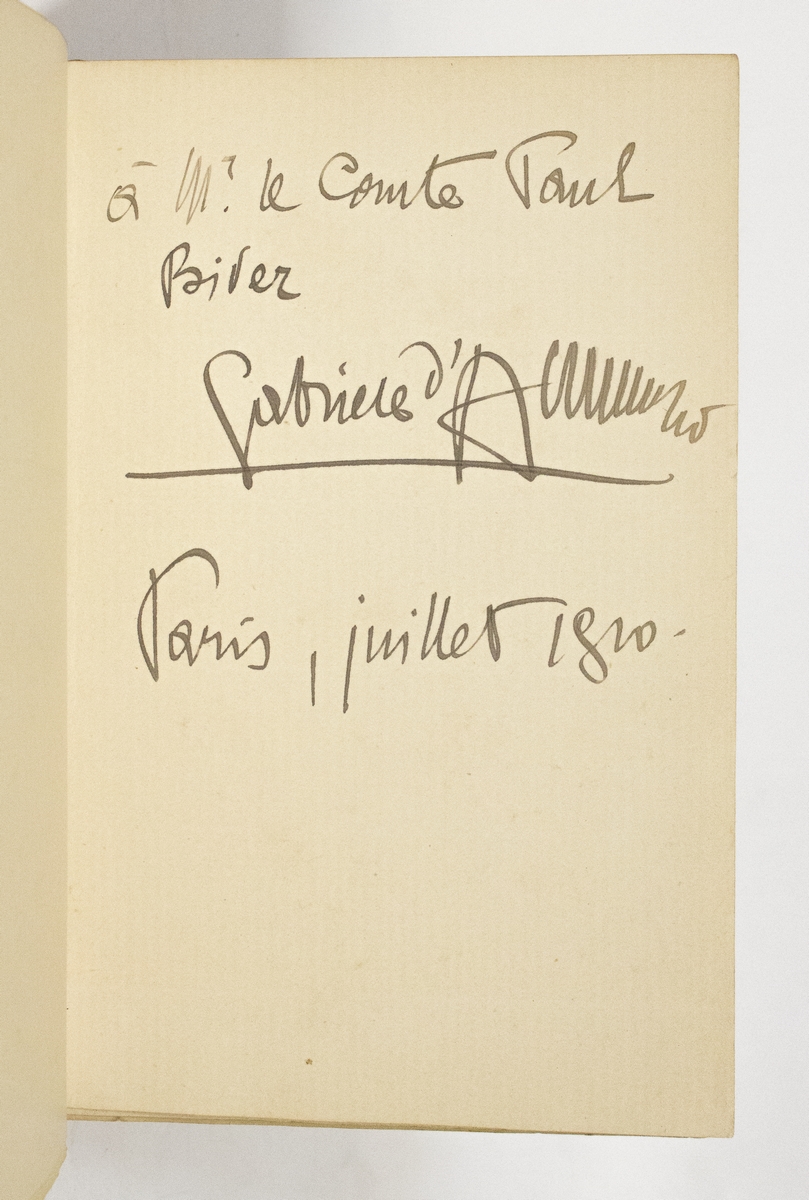 à Mr. le Comte Paul
Biver
Gabriele d'Annunzio
Paris, juillet 1910.